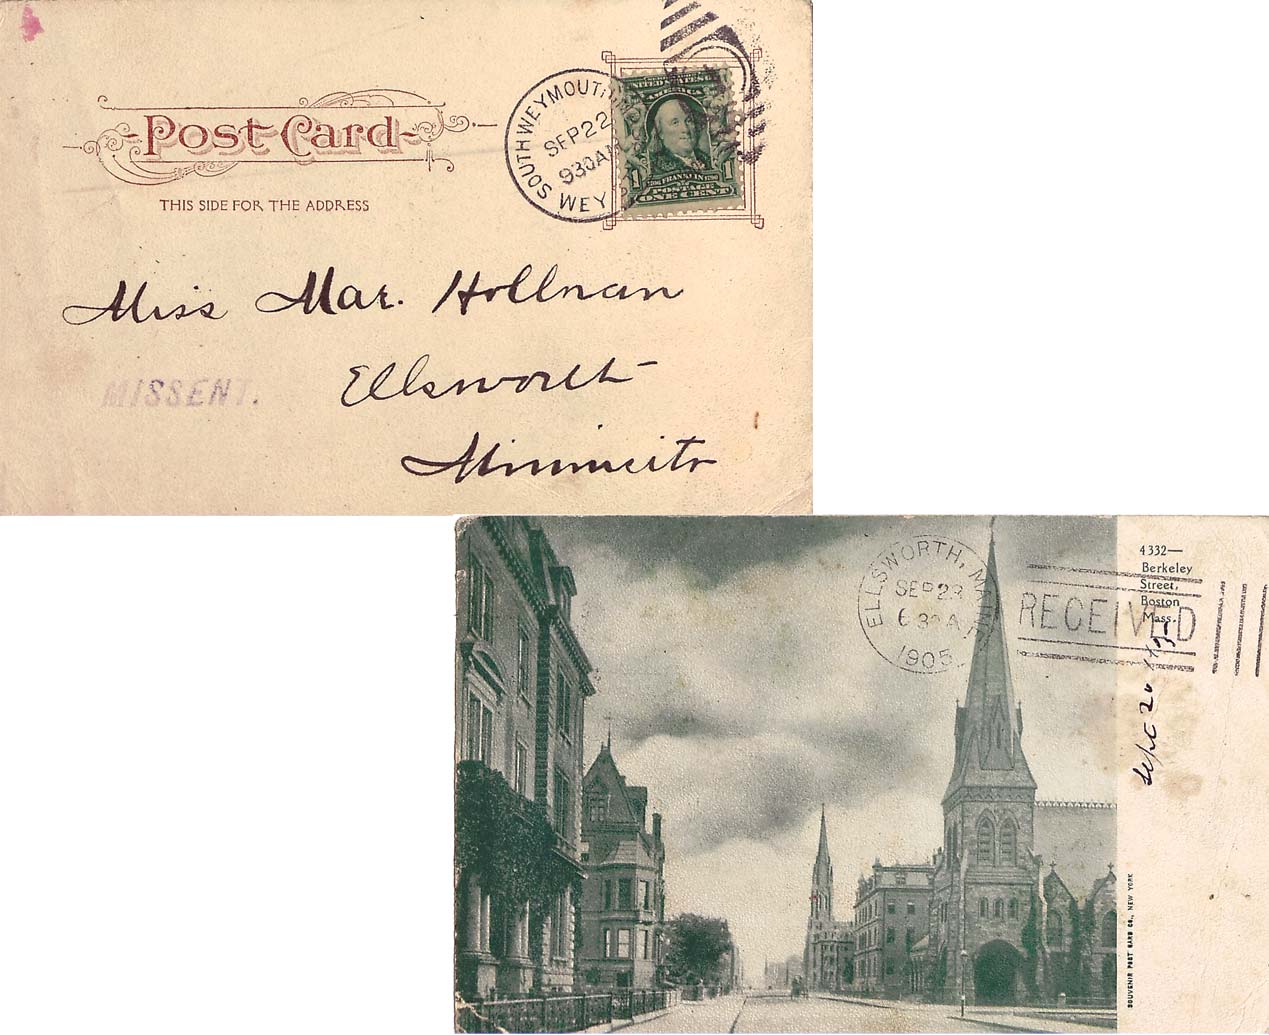 Post Card
THIS SIDE FOR THE ADDRESS
SOUTH WEYMOUTH
SEP 22
930 AM
WEY
UNITED STATES OF
AMERICA
1 FRANKLIN 1
POSTAGE
ONE CENT
Miss Mar. Hollnan
Ellsworth
MISSENT.
4332—
Berkeley
Street,
Boston
Mass.
ELLSWORTH, MAINE
SEP 23
6 30 A
1905
RECEIVED
Sept 20
SOUVENIR POST CARD CO., NEW YORK